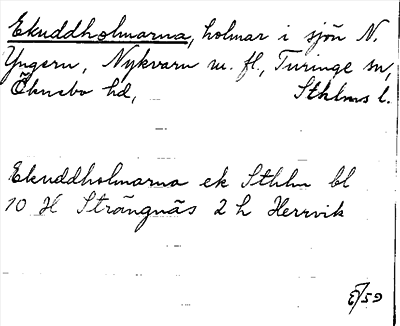 Ekuddholmarna, holmar i sjön N.
Yngern, Nykvarn m. fl., Turinge sn,
Öknebo hd, Sthlms l.
Ekuddholmarna ek Sthlm bl
10 H Strängnäs 2 h Herrvik
E/59